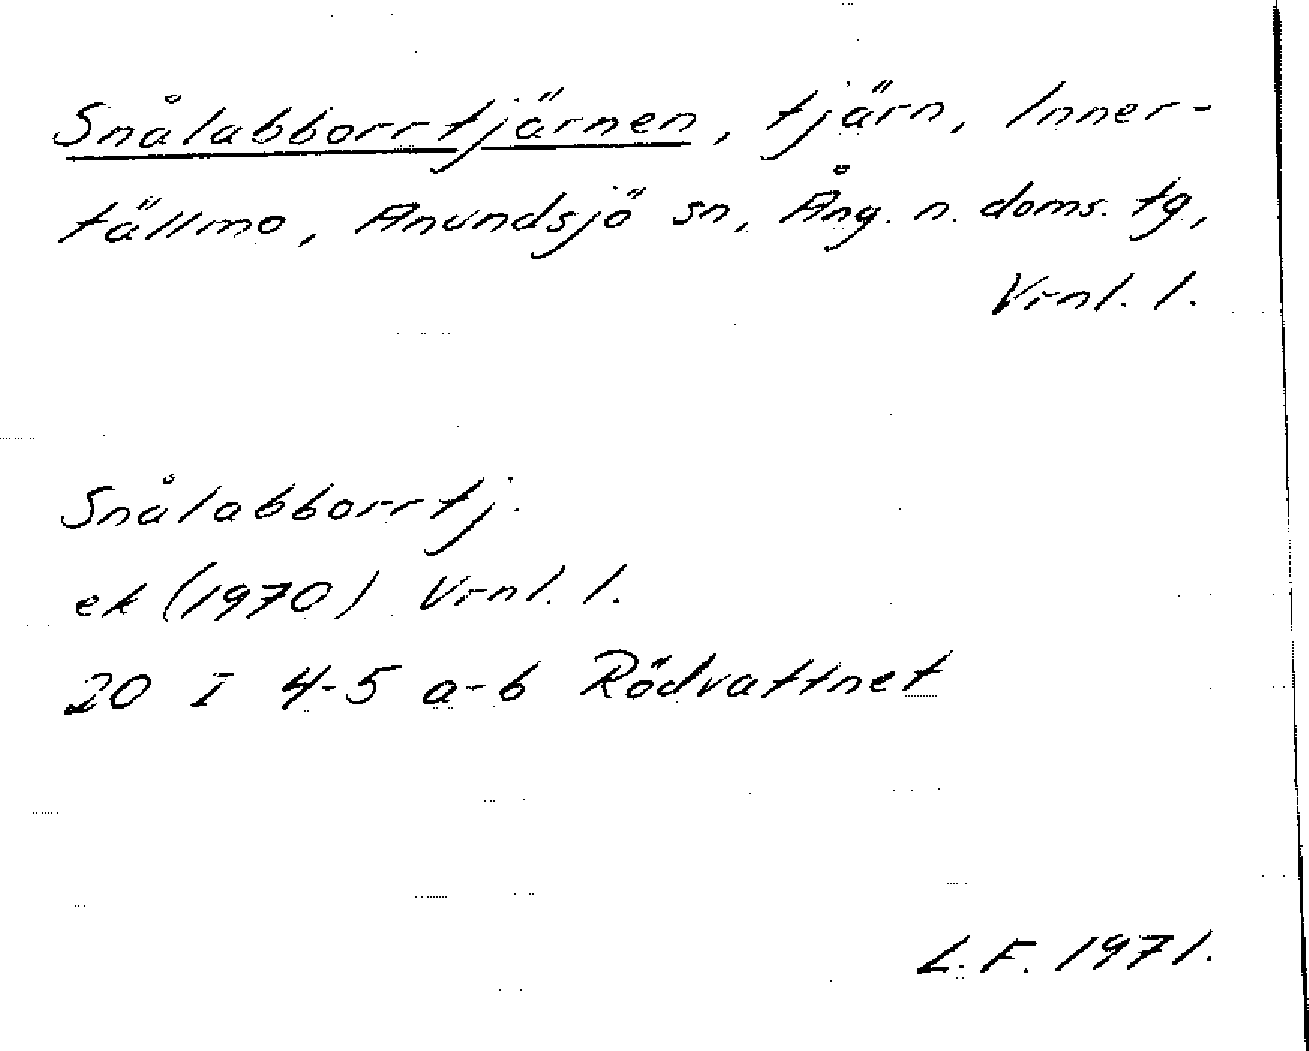 Snålabborrtjärnen, tjärn, Inner-
tällmo, Anundsjö sn, Ång. n. doms. tg,
Vrnl. l.
Snålabborrtj.
ek (1970) Vrnl. l.
20 I 4-5 a-b Rödvattnet
L.F. 1971.